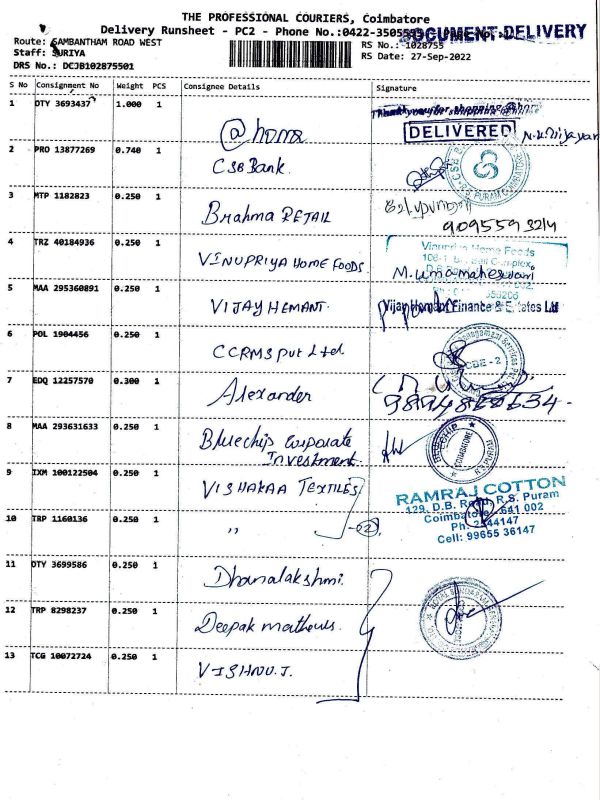 THE PROFESSIONAL COURIERS, Coimbatore
Delivery Runsheet - PC2 - Phone No.:0422-3505555
DOCUMENT DELIVERY
Route: SAMBANTHAM ROAD WEST
RS No.: 1028755
Staff: SURIYA
RS Date: 27-Sep-2022
DRS No.: DCJB102875501
S No Consignment No Weight PCS Consignee Details Signature
1 DTY 3693437 1.000 1 @home
DELIVERED
2 PRO 13877269 0.740 1 CSB Bank.
R.S. PURAM COIMBATORE
3 MTP 1182823 0.250 1 Brahma RETAIL
9095593214
4 TRZ 40184936 0.250 1 VINUPRIYA HOME FOODS.
Vinupriya Home Foods
M. umamaheswari
5 MAA 295360891 0.250 1 VIJAY HEMANT.
Vijay Hemant Finance & Estates Ltd
6 POL 1904456 0.250 1 CCRMS Pvt Ltd.
CBE - 2
7 EDQ 12257570 0.300 1 Alexander
8 MAA 293631633 0.250 1 Bluechip Corporate
Investment
BLUECHIP
COIMBATORE
9 IXM 100122504 0.250 1 VISHAKAA TEXTILES
RAMRAJ COTTON
129, D.B. Road, R.S. Puram
Coimbatore - 641 002
Cell: 99655 36147
10 TRP 1160136 0.250 1 "
02
11 DTY 3699586 0.250 1 Dhanalakshmi.
12 TRP 8298237 0.250 1 Deepak mathews.
13 TCG 10072724 0.250 1 VISHNU.J.